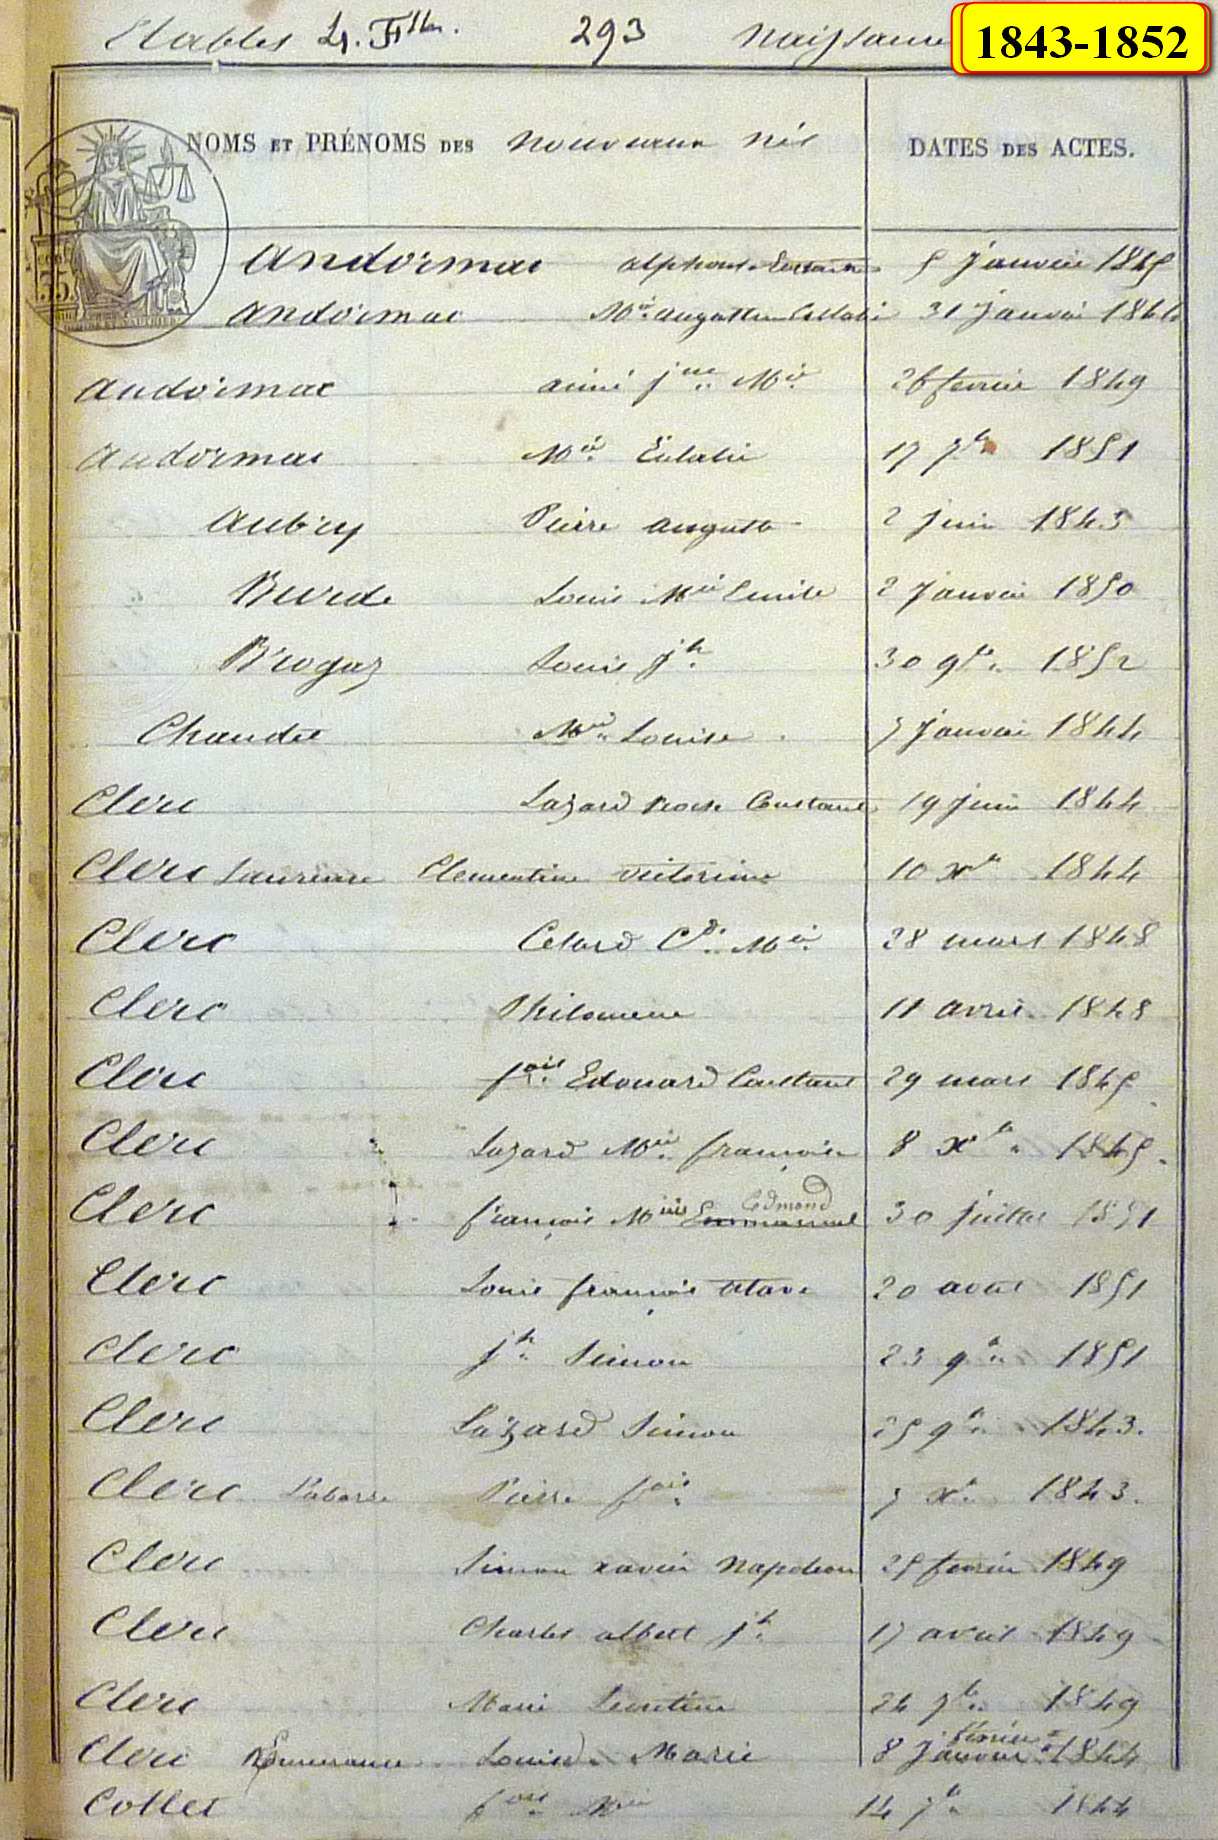 Etables 293 Naissance 1843-1852
NOMS ET PRÉNOMS DES nouveaux nés DATES DES ACTES.
Andoimac alphonse 5 Janvier 1845
Andoimac Mie. augustine 31 Janvier 1844
Andoimac aimé jne. Mie. 26 fevrier 1849
Andoimac Mie. Eulalie 17 7bre 1851
Aubry Pierre auguste 2 juin 1843
Burde Louis Mie Emile 2 Janvier 1850
Brogaz Louis jh. 30 9bre. 1852
Chaudet Mie. Louise 7 Janvier 1844
Clerc Lazard Constant 19 juin 1844
Clerc Laurence Clementine victorine 10 Xbre 1844
Clerc Célard Cd. Mie. 28 mars 1848
Clerc Philomene 11 avril 1848
Clerc fois. Edouard Constant 29 mars 1845
Clerc Lazard Mie. françois 8 Xbre. 1845.
Edmond
Clerc françois Mie Emmanuel 30 juillet 1851
Clerc Louis françois 20 aout 1851
Clerc jh. Simon 23 9bre. 1851
Clerc Lazard Simon 25 9bre. 1843.
Clerc Pierre fois. 7 Xbre. 1843.
Clerc Simon xavier Napoleon 25 fevrier 1849
Clerc Charles albert jh. 17 avril 1849
Clerc Marie 24 7bre. 1849
fevrier
Clerc Louise Marie 8 Janvier 1844
Collet fois. Mie 14 7bre. 1844